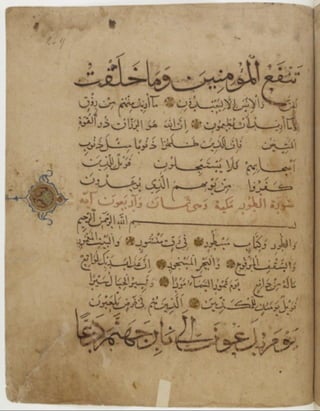 تَنفَعُ الْمُؤْمِنِينَ وَمَا خَلَقْتُ
الجن والإنس إلا ليعبدون ما أريد منهم من رزق
وما أريد أن يطعمون إن الله هو الرزاق ذو القوة
المتين فإن للذين ظلموا ذنوبا مثل ذنوب
أصحابهم فلا يستعجلون فويل للذين
كفروا من يومهم الذي يوعدون
سورة الطور مكية وهي ثمان وأربعون آية
بسم الله الرحمن الرحيم
والطور وكتاب مسطور في رق منشور والبيت المعمور
والسقف المرفوع والبحر المسجور إن عذاب ربك لواقع
ما له من دافع يوم تمور السماء مورا وتسير الجبال سيرا
فويل يومئذ للمكذبين الذين هم في خوض يلعبون
يَوْمَ يُدَعُّونَ إِلَى نَارِ جَهَنَّمَ دَعًّا